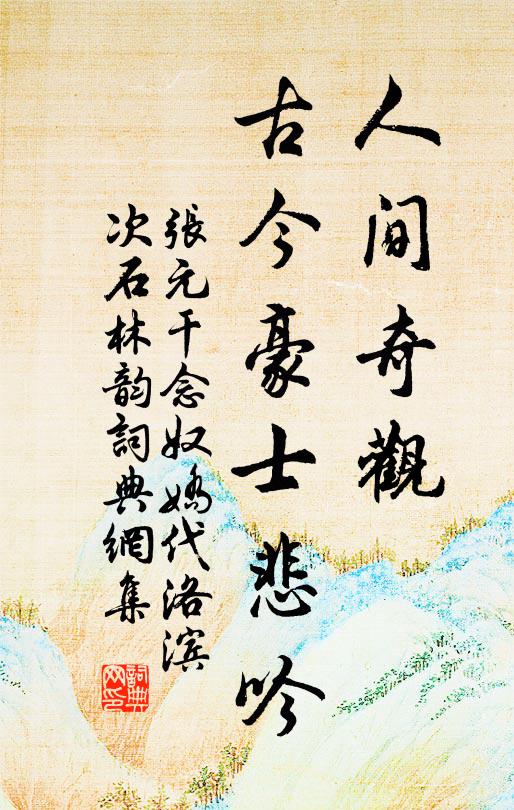 人間奇觀
古今豪士悲吟
張元干念奴嬌代洛滨
次石林韵詞典網集
詞典网印